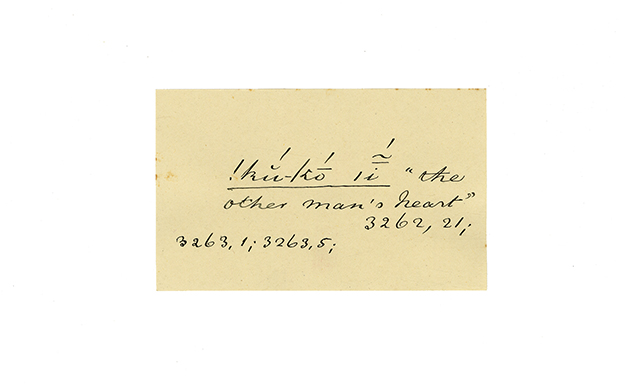 !kŭ́-kṓ ı ĩ́ "the
other man's heart"
3262, 21;
3263, 1; 3263, 5;